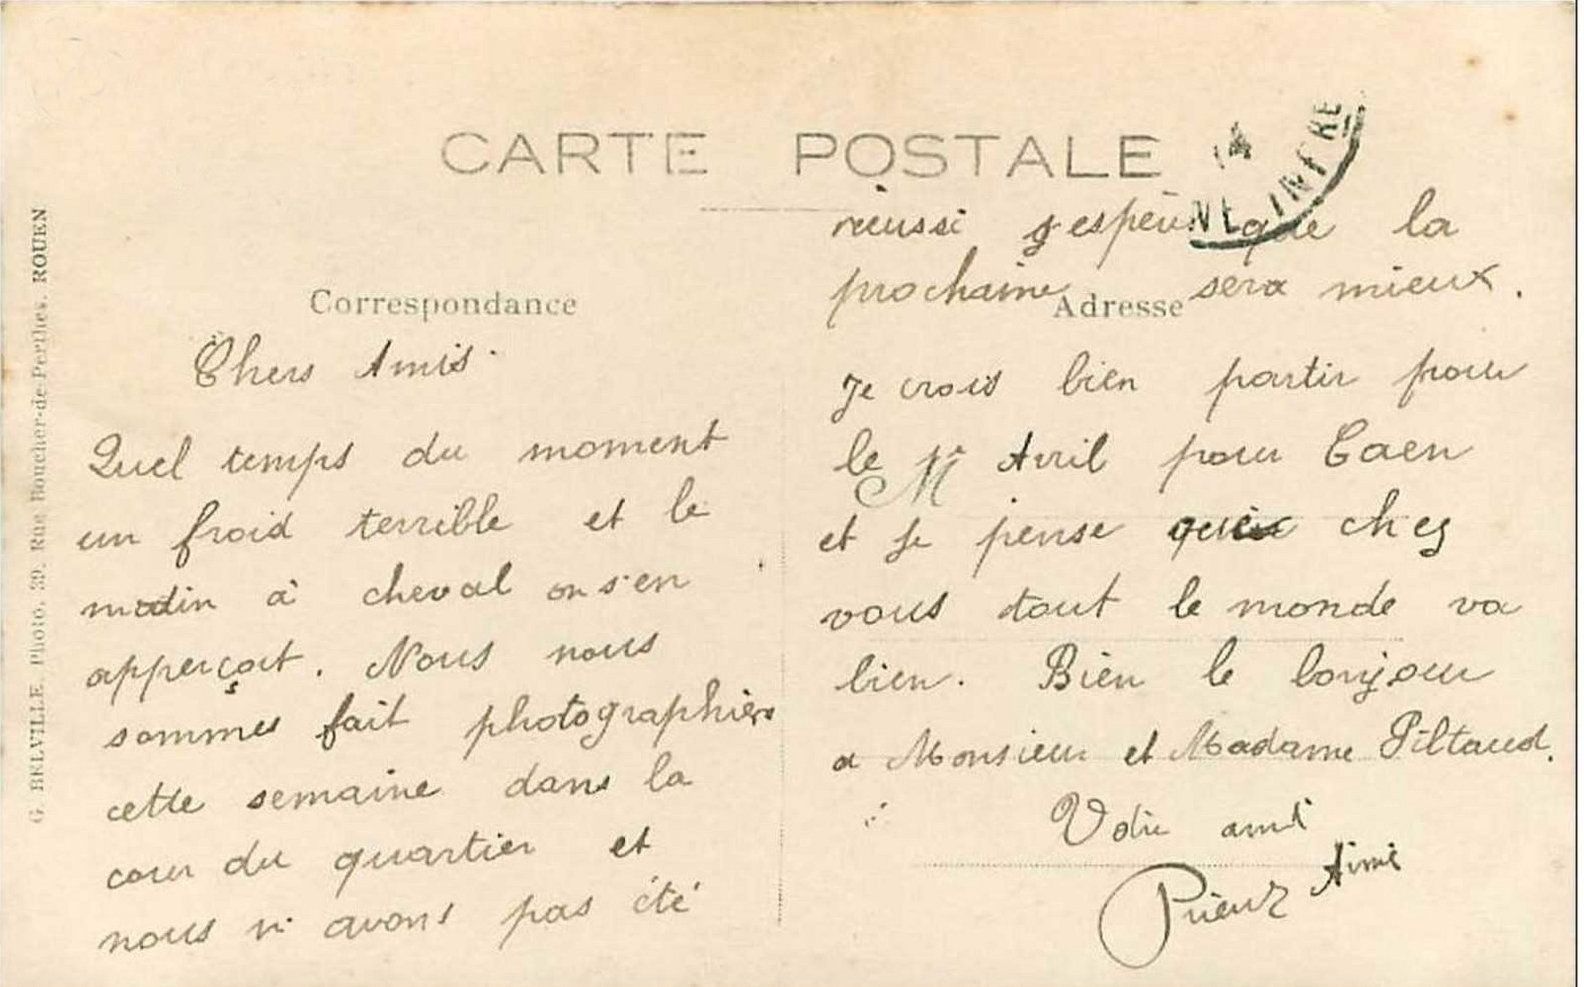 CARTE POSTALE
Correspondance
Chers Amis.
Quel temps du moment
un froid terrible et le
matin à cheval on s'en
apperçoit. Nous nous
sommes fait photographiers
cette semaine dans la
cour du quartier et
nous n'avons pas été
réussi g'espère que la
prochaine sera mieux.
Adresse
Je crois bien partir pour
le 1er Avril pour Caen
et je pense que chez
vous tout le monde va
bien. Bien le bonjour
a Monsieur et Madame Piltaud.
Votre ami
Prieur Aimé
G. BELVILLE, Photo, 39, Rue Boucher-de-Perthes, ROUEN
14
NE INFRE
M